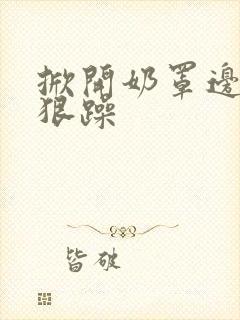 掀開奶罩邊
狠躁
皆破